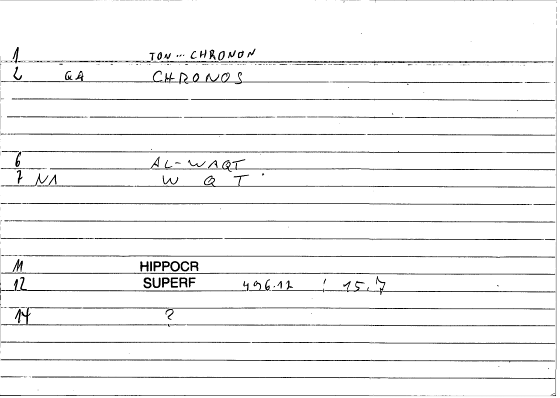 1 TON... CHRONON
2 GA CHRONOS
6 AL-WAQT
7 NA W Q T
11 HIPPOCR
12 SUPERF 496.12 : 15.7
14 ?